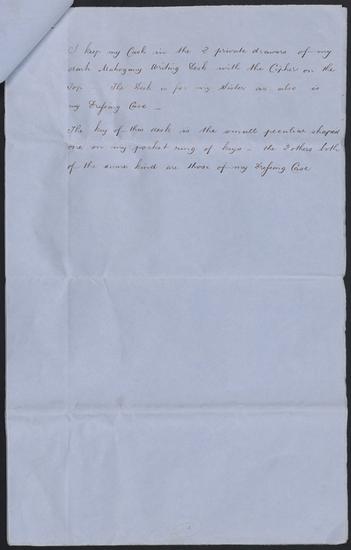 I keep my Cash in the 2 private drawers of my
dark Mahogany Writing Desk with the Cipher on the
Top. The Desk is for my Sister as also is
my Dressing Case –
The key of this desk is the small peculiar shaped
one on my pocket ring of keys – the 2 others both
of the same kind are those of my Dressing Case